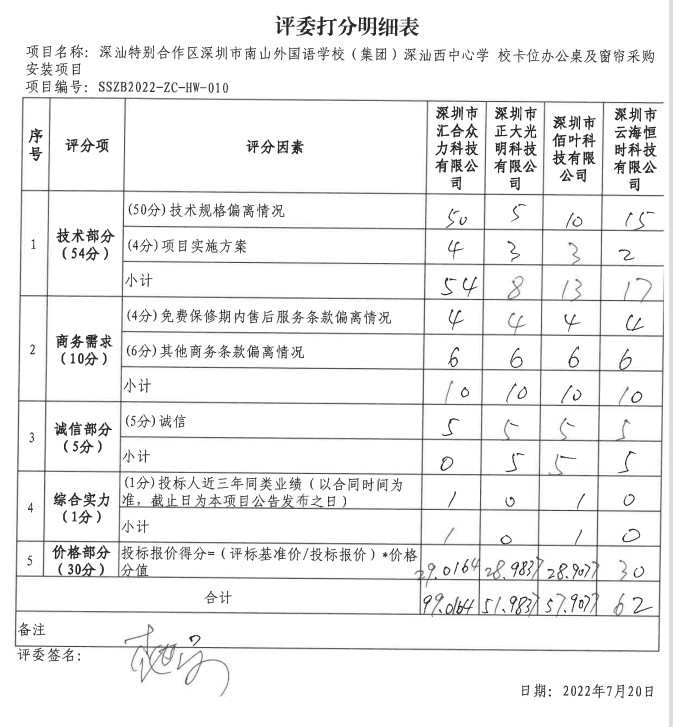 评委打分明细表
项目名称：深汕特别合作区深圳市南山外国语学校（集团）深汕西中心学 校卡位办公桌及窗帘采购
安装项目
项目编号：SSZB2022-ZC-HW-010
序号 评分项 评分因素 深圳市汇合众力科技有限公司 深圳市正大光明科技有限公司 深圳市佰叶科技有限公司 深圳市云海恒时科技有限公司
1 技术部分（54分） (50分)技术规格偏离情况 50 5 10 15
(4分)项目实施方案 4 3 3 2
小计 54 8 13 17
2 商务需求（10分） (4分)免费保修期内售后服务条款偏离情况 4 4 4 4
(6分)其他商务条款偏离情况 6 6 6 6
小计 10 10 10 10
3 诚信部分（5分） (5分)诚信 5 5 5 5
小计 0 5 5 5
4 综合实力（1分） (1分)投标人近三年同类业绩（以合同时间为
准，截止日为本项目公告发布之日） 1 0 1 0
小计 1 0 1 0
5 价格部分（30分） 投标报价得分=（评标基准价/投标报价）*价格
分值 29.0164 28.9837 28.9077 30
合计 99.0164 51.9837 57.9077 62
备注
评委签名：
日期：2022年7月20日